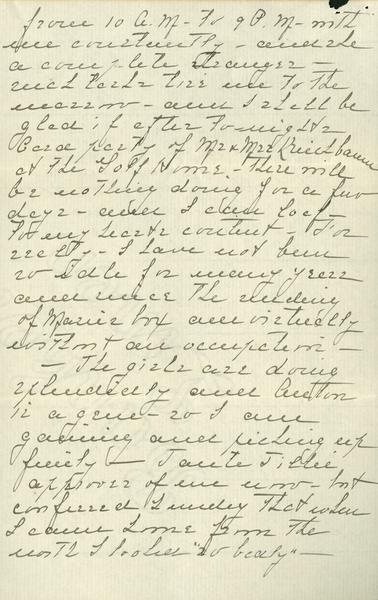 from 10 A.M. - to 9 P.M. - with
me constantly - and she
a complete stranger -
such tasks tire me to the
marrow - and I shall be
glad if after tonights
Card party of Mr & Mrs
at the Golf Home. There will
be nothing doing for a few
days - when I can loaf
to my hearts content - For
really - I have not been
so idle for many years
and since the sending
of Marie's box am virtually
without an occupation -
- The girls are doing
splendidly and Anton
is a gem - so I am
gaining and picking up
finely - Tante Tillie
approves of me now - but
confessed Sunday that when
I came home from the
north I looked "so badly" -